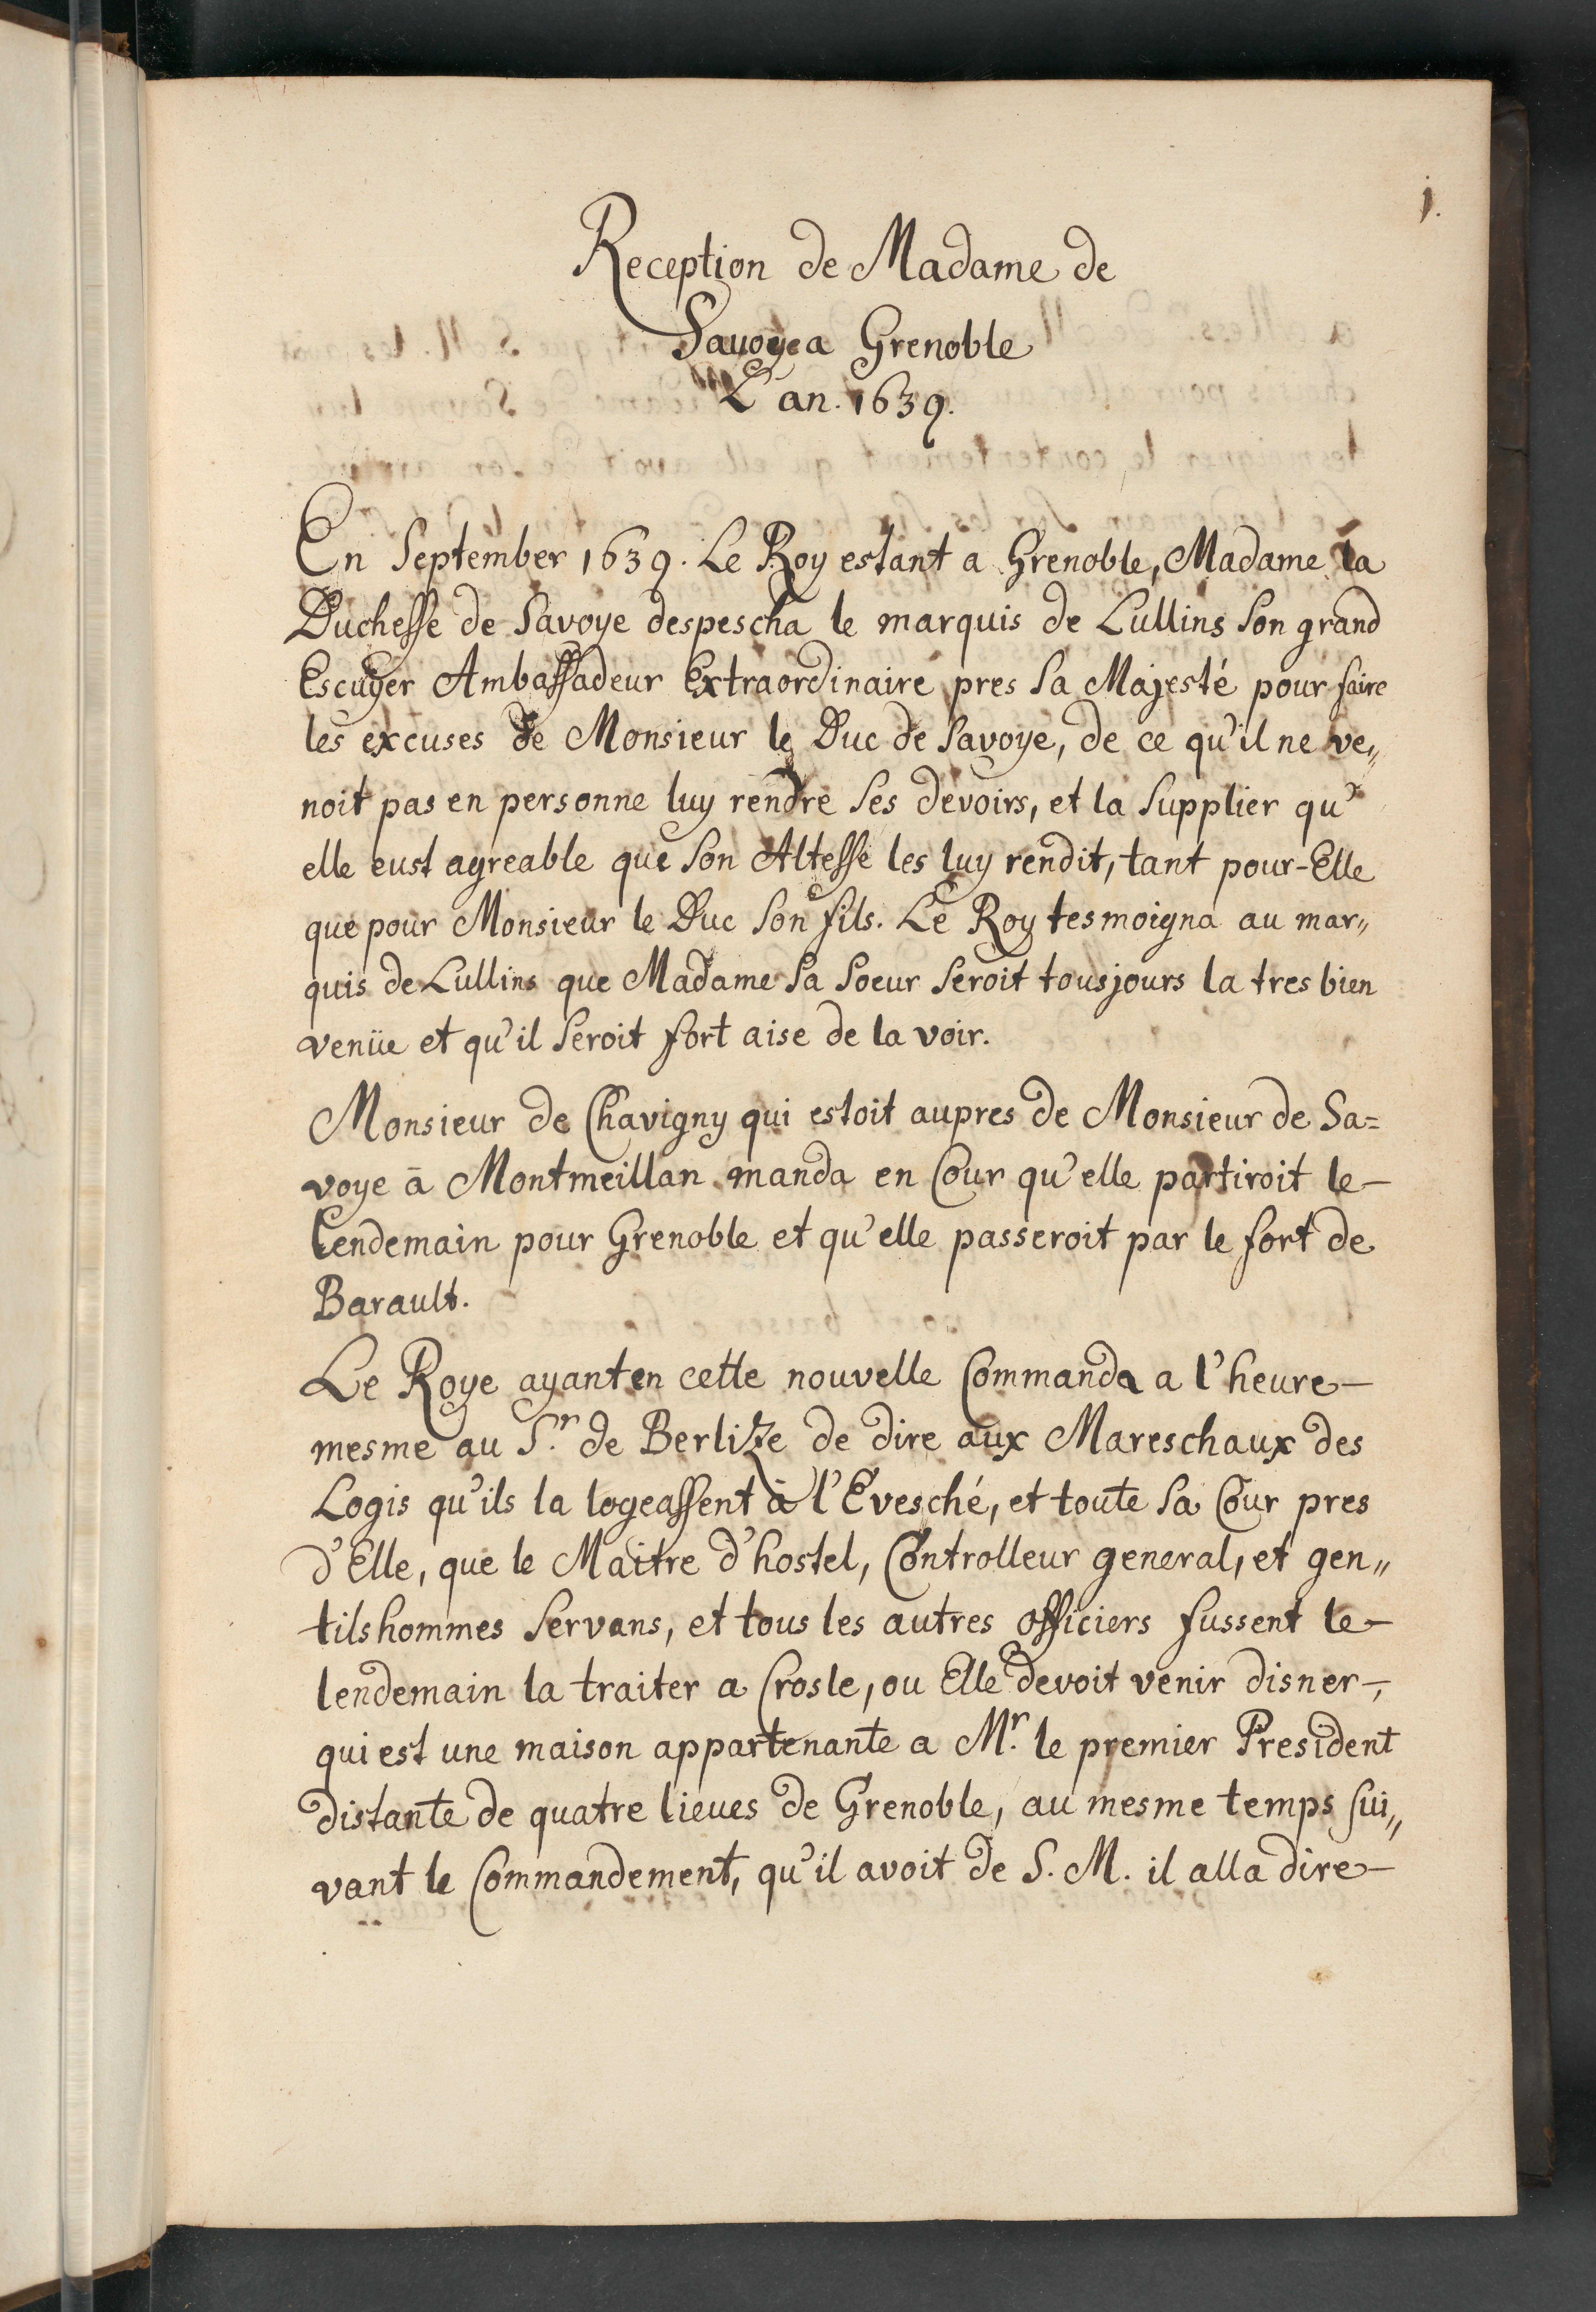 1.
Reception de Madame de
Savoye a Grenoble
L'an. 1639.
En September 1639. Le Roy estant a Grenoble, Madame la
Duchesse de Savoye despescha le marquis de Lullins son grand
Escuyer Ambassadeur Extraordinaire pres sa Majesté pour faire
les excuses de Monsieur le Duc de Savoye, de ce qu'il ne ve„
noit pas en personne luy rendre ses devoirs, et la supplier qu'
elle eust agreable que son Altesse les luy rendit, tant pour-Elle
que pour Monsieur le Duc son fils. Le Roy tesmoigna au mar„
quis de Lullins que Madame sa soeur seroit tousjours la tres bien
venüe et qu'il seroit fort aise de la voir.
Monsieur de Chavigny qui estoit aupres de Monsieur de Sa=
voye ā Montmeillan manda en Cour qu'elle partiroit le-
lendemain pour Grenoble et qu'elle passeroit par le fort de
Barault.
Le Roye ayant en cette nouvelle Commanda a l'heure-
mesme au S.r de Berlize de dire aux Mareschaux des
Logis qu'ils la logeassent à l'Evesché, et toute sa Cour pres
d'Elle, que le Maitre d'hostel, Controlleur general, et gen„
tilshommes servans, et tous les autres officiers fussent le-
lendemain la traiter a Crosle, ou Elle devoit venir disner-,
qui est une maison appartenante a M.r le premier President
distante de quatre lieues de Grenoble, au mesme temps sui„
vant le Commandement, qu'il avoit de S. M. il alla dire-